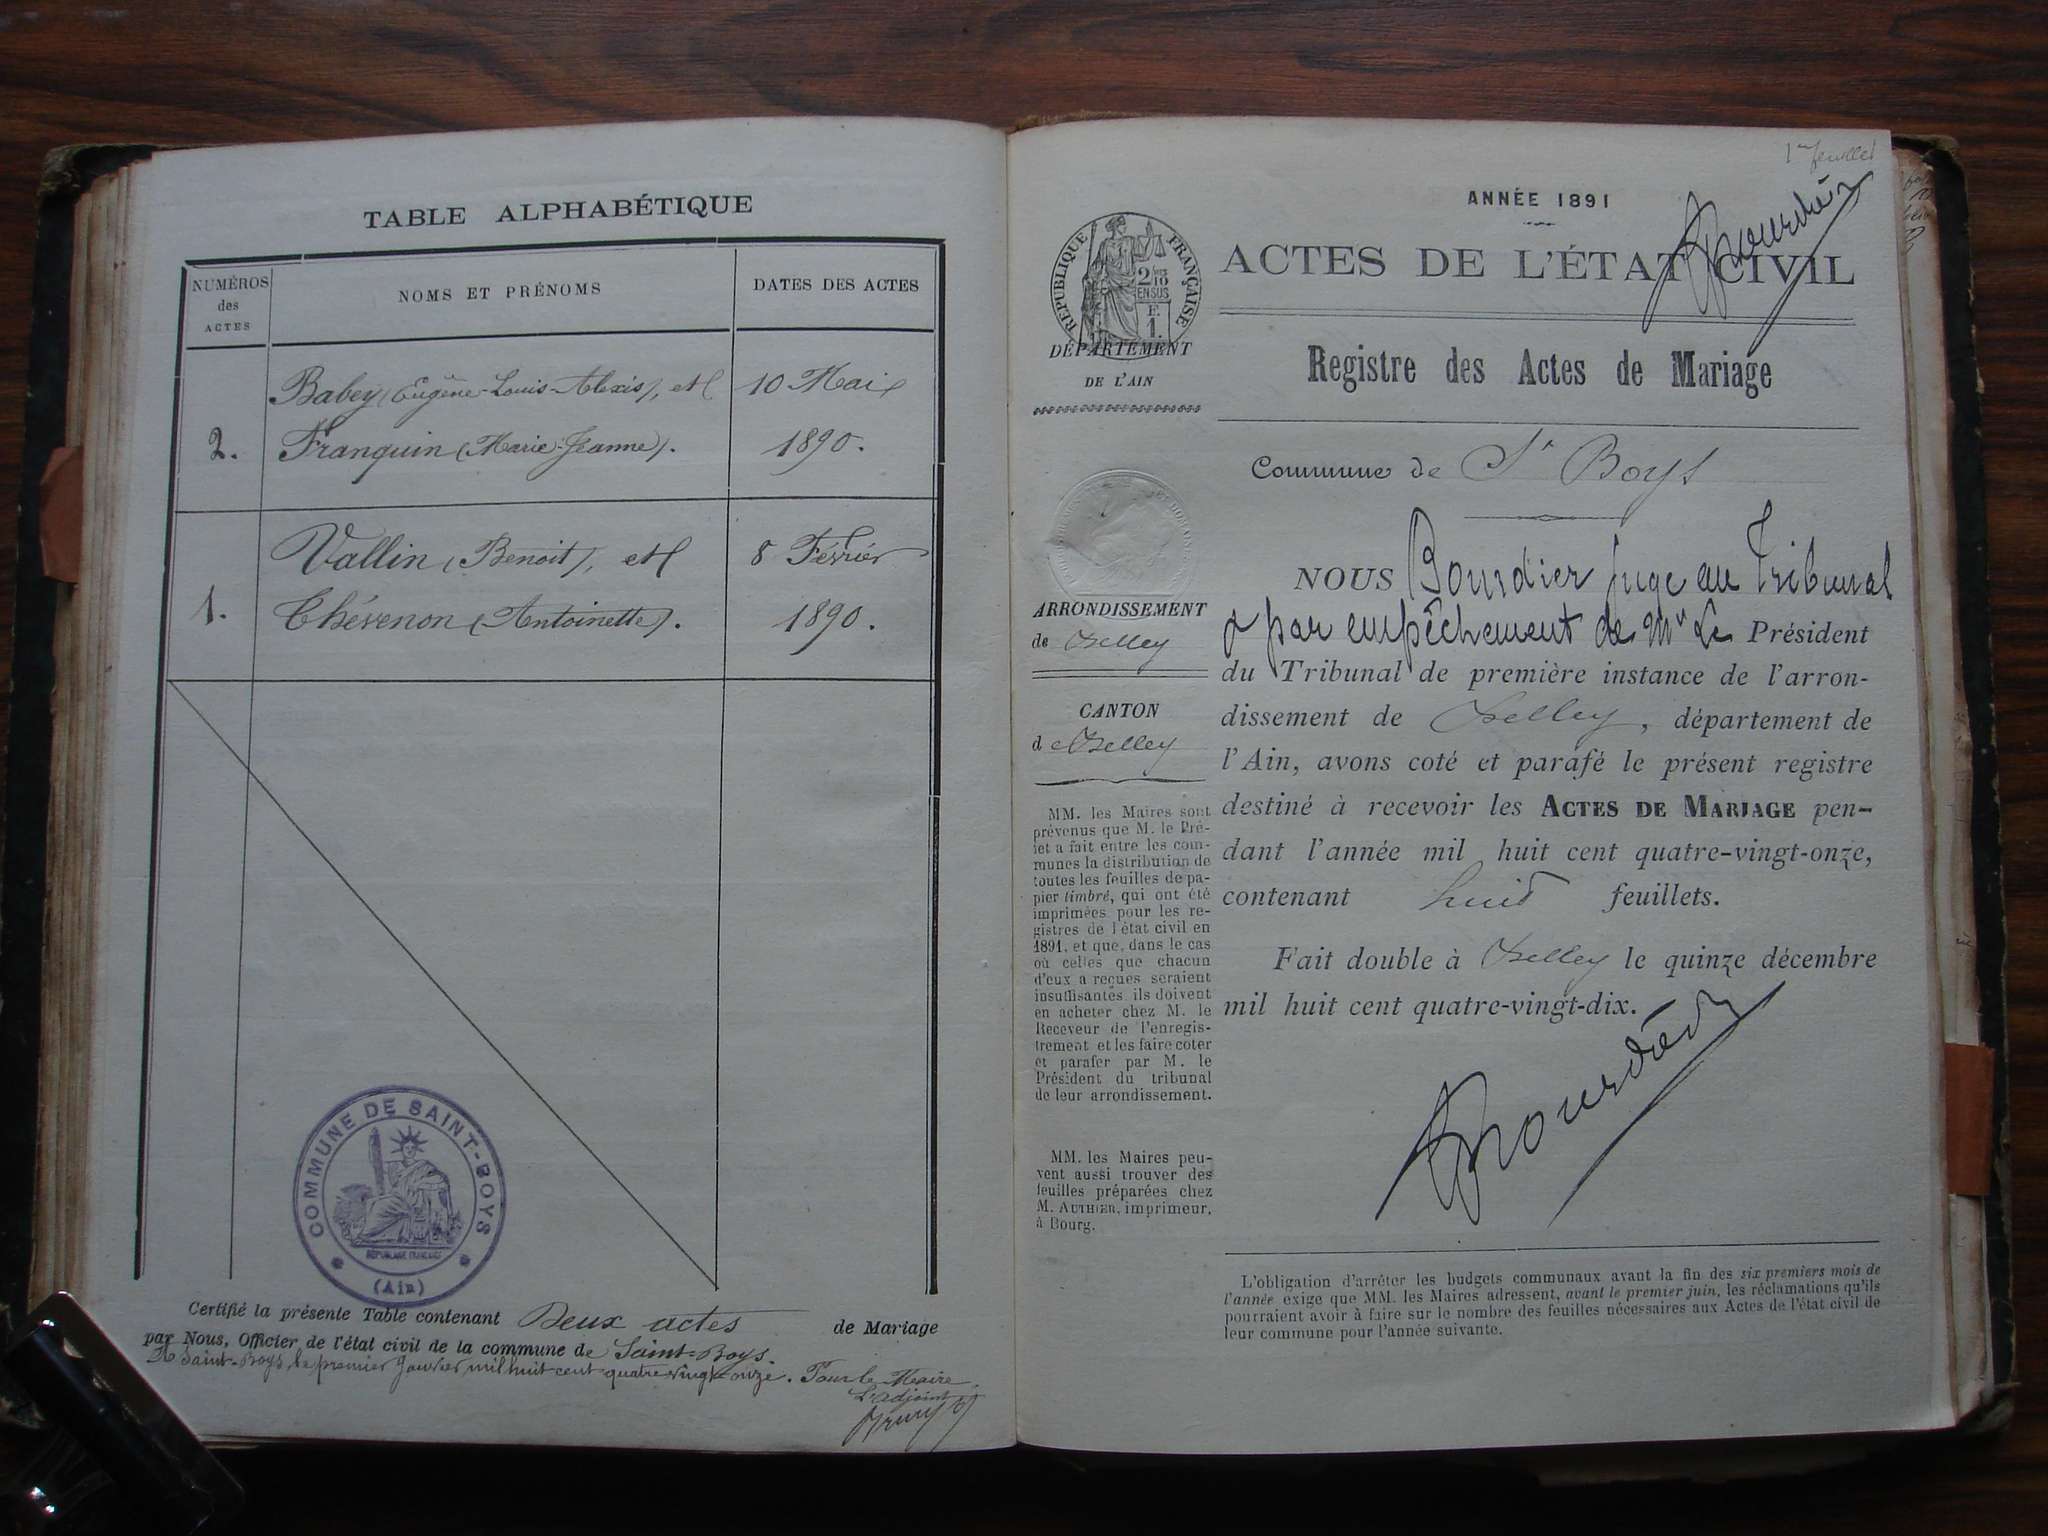 TABLE ALPHABÉTIQUE
NUMÉROS des ACTES
NOMS ET PRÉNOMS
DATES DES ACTES
Babey (Eugène-Louis-Alexis), et
10 Mai
2.
Franquin (Marie-Jeanne).
1890.
Vallin (Benoit), et
8 Février
1.
Thévenon (Antoinette).
1890.
COMMUNE DE SAINT-BOYS
RÉPUBLIQUE FRANÇAISE
(Ain)
Certifié la présente Table contenant Deux actes de Mariage
par Nous, Officier de l'état civil de la commune de Saint-Boys.
A Saint-Boys, le premier Janvier mil huit cent quatre vingt onze. Pour le Maire
L'adjoint
1er feuillet
ANNÉE 1891
Bourdier
RÉPUBLIQUE FRANÇAISE
2 10es
EN SUS
E.
1.
ACTES DE L'ÉTAT CIVIL
DÉPARTEMENT
DE L'AIN
Registre des Actes de Mariage
Commune de St Boys
ARRONDISSEMENT
de Belley
CANTON
de Belley
MM. les Maires sont
prévenus que M. le Pré-
fet a fait entre les com-
munes la distribution de
toutes les feuilles de pa-
pier timbré, qui ont été
imprimées pour les re-
gistres de l'état civil en
1891, et que, dans le cas
où celles que chacun
d'eux a reçues seraient
insuffisantes, ils doivent
en acheter chez M. le
Receveur de l'enregis-
trement et les faire coter
et parafer par M. le
Président du tribunal
de leur arrondissement.
MM. les Maires peu-
vent aussi trouver des
feuilles préparées chez
M. AUTHIER, imprimeur,
à Bourg.
NOUS Bourdier juge au Tribunal
& par empêchement de Mr Le Président
du Tribunal de première instance de l'arron-
dissement de Belley, département de
l'Ain, avons coté et parafé le présent registre
destiné à recevoir les ACTES DE MARIAGE pen-
dant l'année mil huit cent quatre-vingt-onze,
contenant huit feuillets.
Fait double à Belley le quinze décembre
mil huit cent quatre-vingt-dix.
Bourdier
L'obligation d'arrêter les budgets communaux avant la fin des six premiers mois de
l'année exige que MM. les Maires adressent, avant le premier juin, les réclamations qu'ils
pourraient avoir à faire sur le nombre des feuilles nécessaires aux Actes de l'état civil de
leur commune pour l'année suivante.